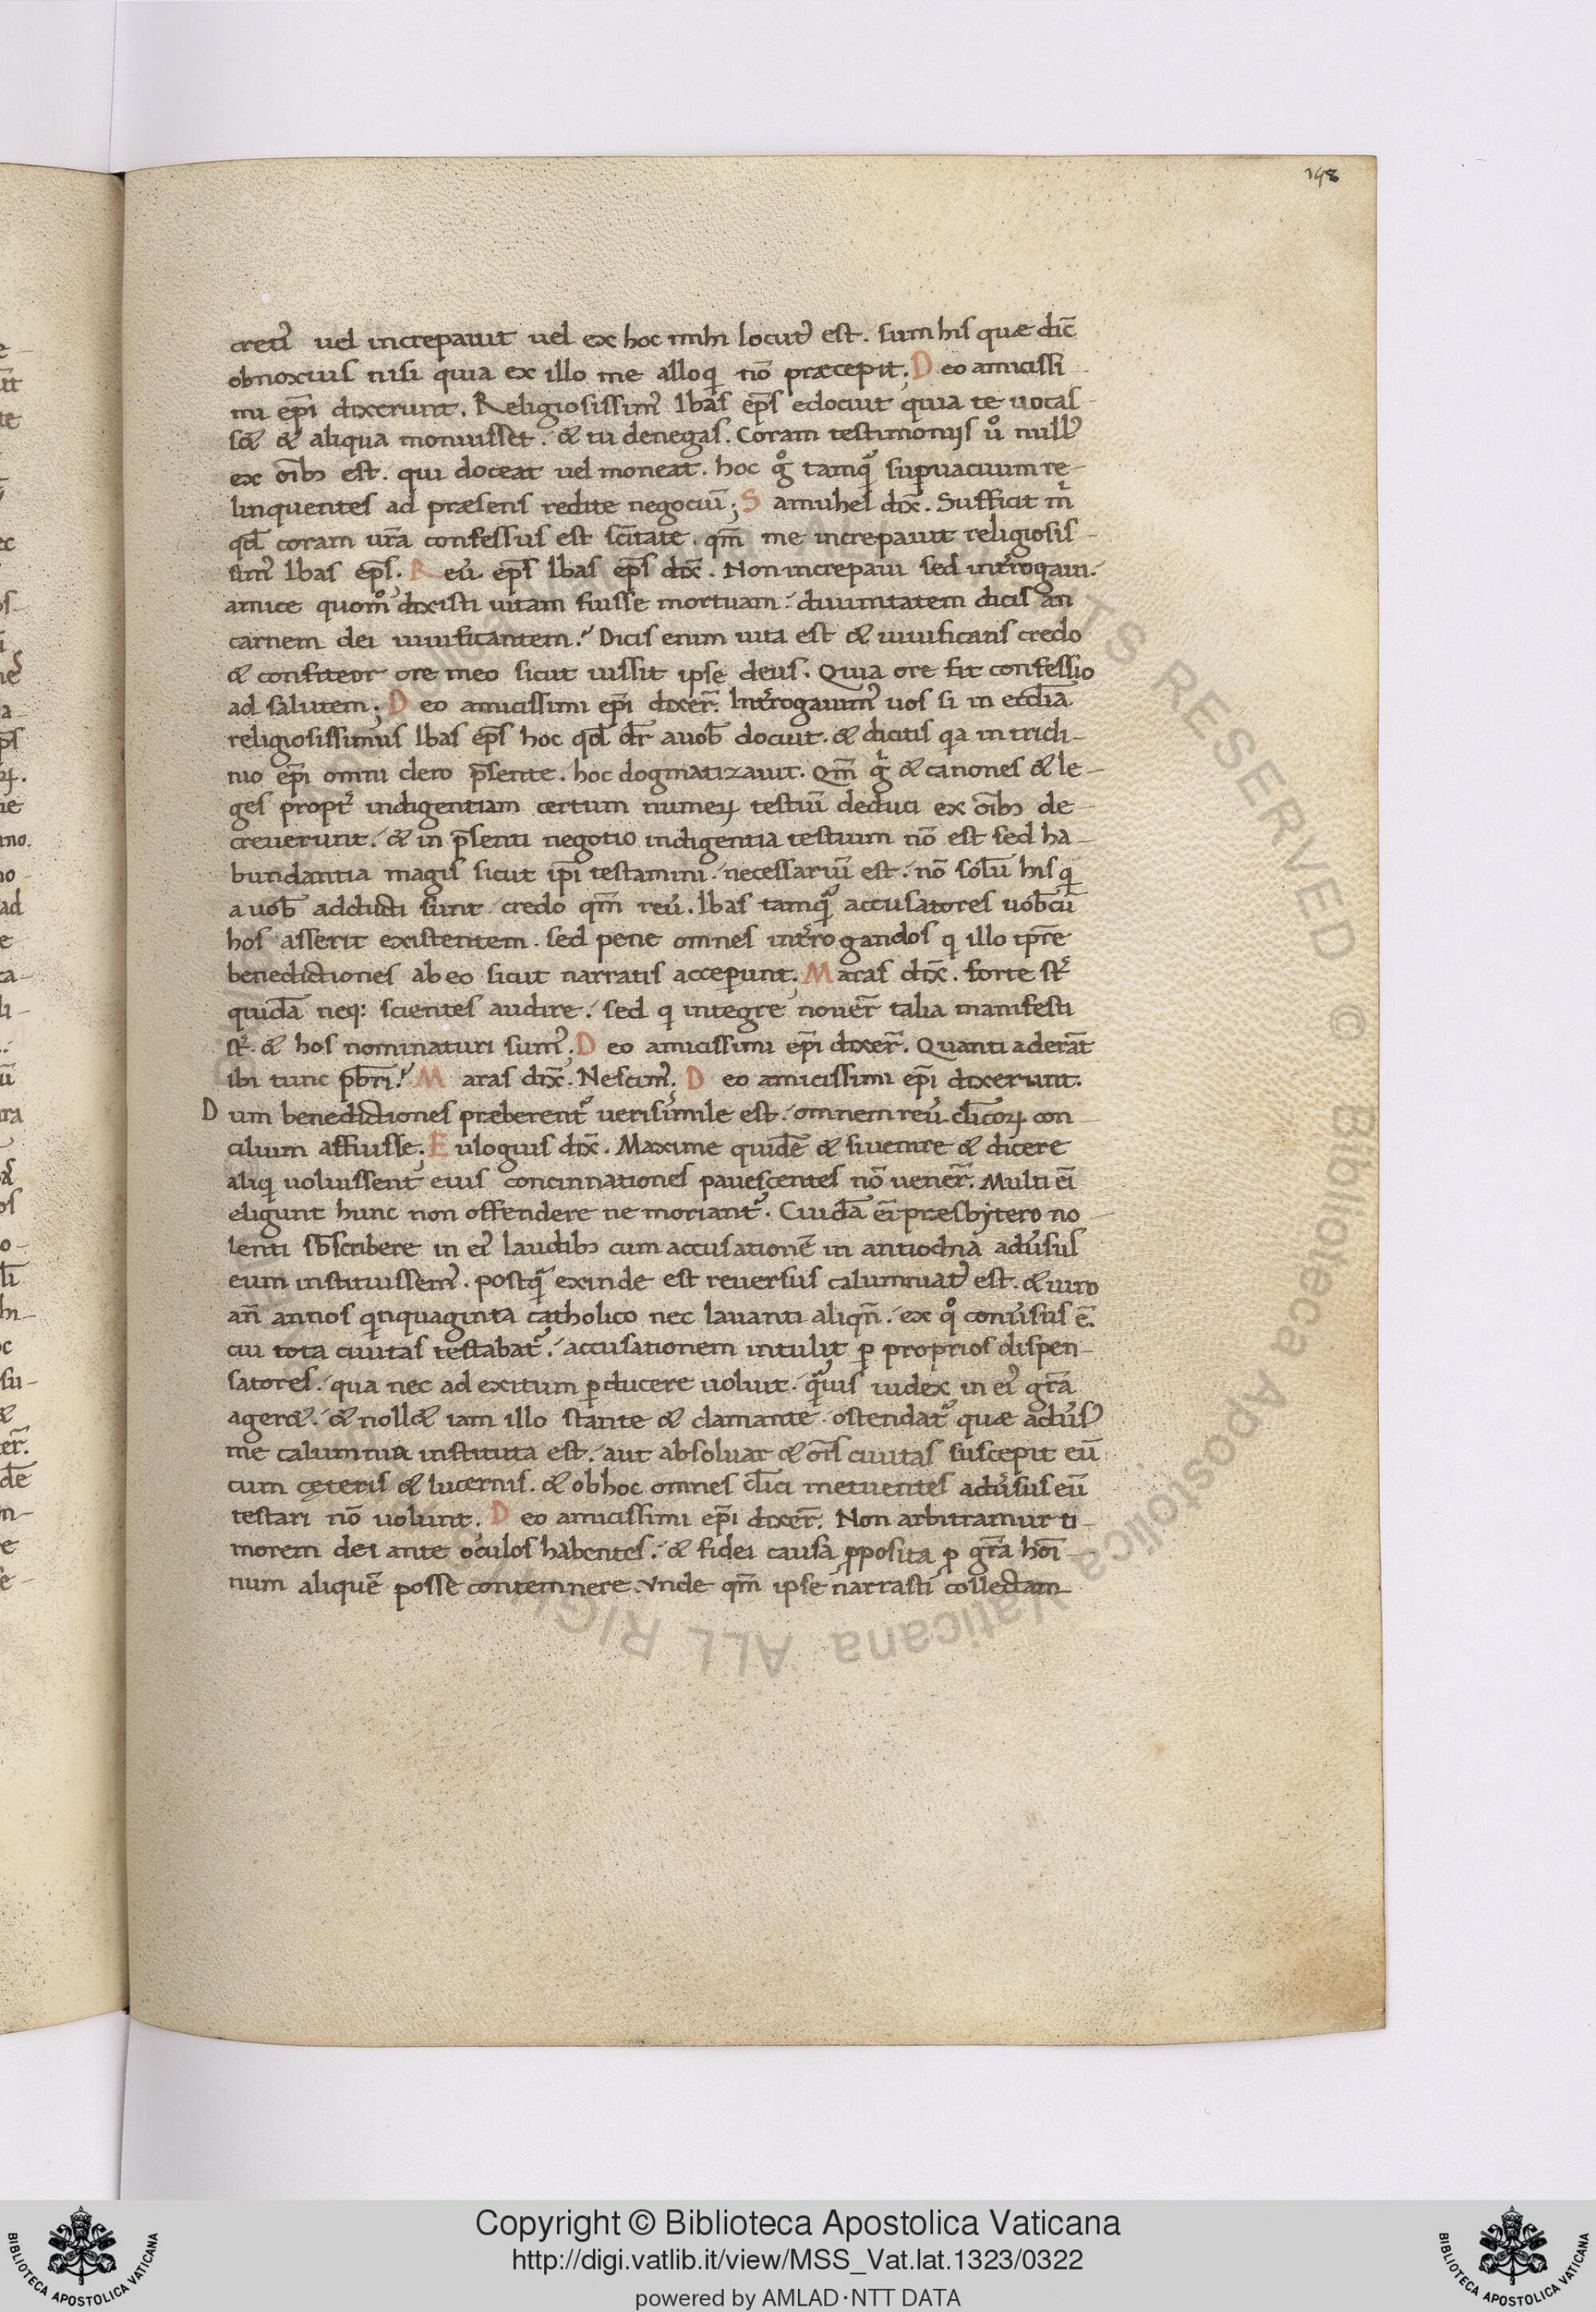 198
creti uel increpauit uel ex hoc mihi locut᾽ est. sum his quæ dic̄
obnoxius nisi quia ex illo me alloqi nō præcepit; Deo amicissi-
mi ep̄i dixerunt. Religiosissim᾽ Ibas ep̄s edocuit quia te uocas-
s& & aliqua monuisset. & tu denegas. Coram testimoniis uͦ null᾽
ex oīb; est. qui doceat uel moneat. hoc gͦ tamqͣ suꝑuacuum re-
linquentes ad præsens redite negociū; Samuhel dix̄. Sufficit mͥ
qđ coram ur̄a confessus est sc̄itate. qm̄ me increpauit religiosis-
sim᾽ Ibas ep̄s. Reu. ep̄s Ibas ep̄s dix̄. Non increpaui sed int̓rogaui.
amice quomͦ dixisti uitam fuisse mortuam. diuinitatem dicis an
carnem dei uiuificantem? Dicis enim uita est & uiuificans credo
& confiteor ore meo sicut iussit ipse deus. Quia ore fit confessio
ad salutem; Deo amicissimi ep̄i dixer̄. Int̓rogauim᾽ uos si in eccl̄ia
religiosissimus Ibas ep̄s hoc qđ dr̄ a uob̄ docuit. & dicitis qa in tricli-
nio ep̄i omni clero p̄sente. hoc dogmatizauit. Qm̄ gͥ & canones & le-
ges propt̓ indigentiam certum numeꝝ testiū deduci ex oīb; de-
creuerunt. & in p̄senti negotio indigentia testium nō est sed ha-
bundantia magis sicut ip̄i testamini. necessariū est. nō solū his qi
a uob̄ adducti sunt. credo qm̄ reu. Ibas tamqͣ accusatores uob̄cū
hos asserit existentem. sed pene omnes int̓rogandos qi illo tp̄re
benedictiones ab eo sicut narratis acceꝑunt; Maras dix̄. forte st̓
quidā neq: scientes audire. sed qi integre nouer̄ talia manifesti
st̓. & hos nominaturi sum᾽; Deo amicissimi ep̄i dixer̄. Quanti aderāt
ibi tunc pb̄ri? Maras dix̄. Nescim᾽; Deo amicissimi ep̄i dixerunt.
Dum benedictiones præberent᾽ uerisimile est. omnem reu. cl̄icoꝝ con-
cilium affuisse; Eulogius dix̄. Maxime quidē & si uenire & dicere
aliqi uoluissent eius concinnationes pauescentes nō uener̄. Multi eī
eligunt hunc non offendere ne moriant᾽. Cuidā eī præsbytero no-
lenti sb̄scribere in ei᾽ laudib; cum accusationē in antiochia adu̓sus
eum instituissem᾽. postqͣ exinde est reuersus calumniat᾽ est. & uiro
an̄ annos qinquaginta catholico nec lauanti aliqn̄. ex qͦ conu̓sus ē.
cu tota ciuitas testabat᾽. accusationem intulit ꝑ proprios dispen-
satores. qua nec ad exitum ꝑducere uoluit. qͣuis iudex in ei᾽ gr̄a
ager&. & noll& iam illo stante & clamante. ostendat᾽ quæ adu̓s᾽
me calumnia instituta est. aut absoluar & om̄s ciuitas suscepit eū
cum cęteris & lucernis. & ob hoc omnes cl̄ici metuentes adu̓sus eū
testari nō uolunt. Deo amicissimi ep̄i dixer̄. Non arbitramur ti-
morem dei ante oculos habentes. & fidei causa ꝓposita ꝓ gr̄a homī-
num aliquē posse contemnere. Vnde qm̄ ipse narrasti collectam
Copyright © Biblioteca Apostolica Vaticana
http://digi.vatlib.it/view/MSS_Vat.lat.1323/0322
powered by AMLAD·NTT DATA
BIBLIOTECA APOSTOLICA VATICANA
BIBLIOTECA APOSTOLICA VATICANA